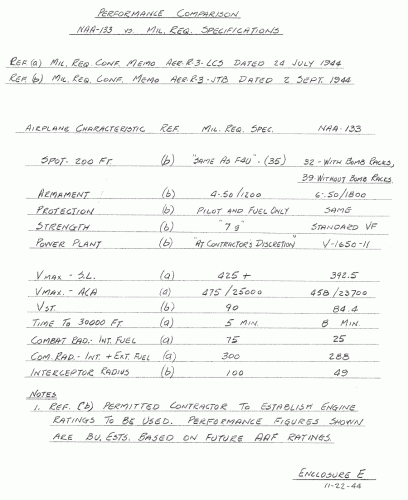 PERFORMANCE COMPARISON
NAA-133 vs. MIL. REQ. SPECIFICATIONS
REF (a) MIL. REQ. CONF. MEMO AER-R-3-LCS DATED 24 JULY 1944
REF (b) MIL. REQ. CONF. MEMO AER-R-3-JTB DATED 2 SEPT. 1944
AIRPLANE CHARACTERISTIC REF. MIL. REQ. SPEC. NAA-133
SPOT-200 FT (b) "SAME AS F4U"-(35) 32-WITH BOMB RACKS,
39-WITHOUT BOMB RACKS
ARMAMENT (b) 4-.50/1200 6-.50/1800
PROTECTION (b) PILOT AND FUEL ONLY SAME
STRENGTH (b) "7g" STANDARD VF
POWER PLANT (b) "AT CONTRACTOR'S DISCRETION" V-1650-11
VMAX.-S.L. (a) 425+ 392.5
VMAX.-ACA (a) 475/25000 458/23700
VST. (b) 90 84.4
TIME TO 30000 FT (a) 5 MIN. 8 MIN.
COMBAT RAD.-INT. FUEL (a) 75 25
COM. RAD-INT.+EXT. FUEL (a) 300 288
INTERCEPTOR RADIUS (b) 100 49
NOTES
1. REF. (b) PERMITTED CONTRACTOR TO ESTABLISH ENGINE
RATINGS TO BE USED. PERFORMANCE FIGURES SHOWN
ARE BU. ESTS. BASED ON FUTURE AAF RATINGS.
ENCLOSURE E
11-22-44